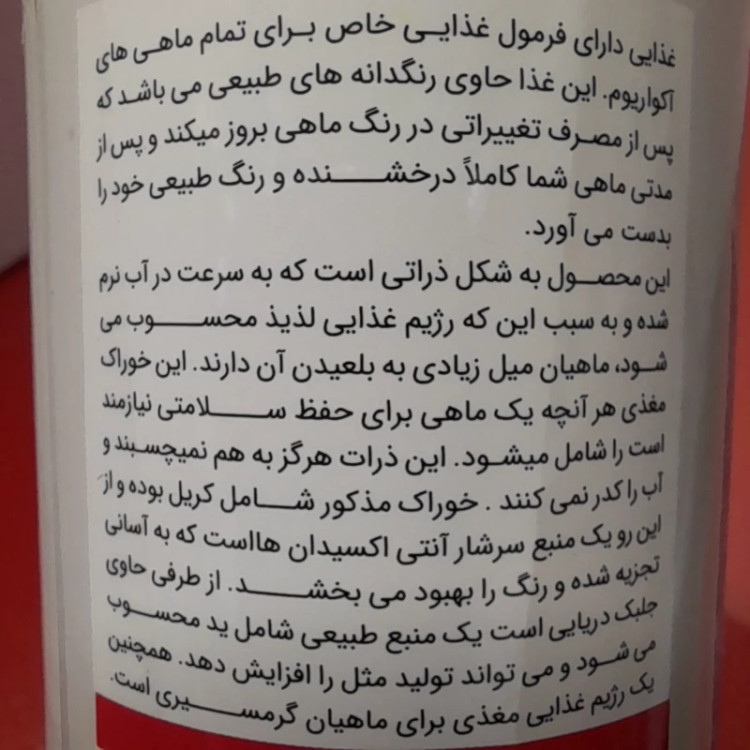 غذایی دارای فرمول غذایی خاص برای تمام ماهی های
آکواریوم. این غذا حاوی رنگدانه های طبیعی می باشد که
پس از مصرف تغییراتی در رنگ ماهی بروز میکند و پس از
مدتی ماهی شما کاملاً درخشنده و رنگ طبیعی خود را
بدست می آورد.
این محصول به شکل ذراتی است که به سرعت در آب نرم
شده و به سبب این که رژیم غذایی لذیذ محسوب می
شود، ماهیان میل زیادی به بلعیدن آن دارند. این خوراک
مغذی هر آنچه یک ماهی برای حفظ سلامتی نیازمند
است را شامل میشود. این ذرات هرگز به هم نمیچسبند و
آب را کدر نمی کنند . خوراک مذکور شامل کریل بوده و از
این رو یک منبع سرشار آنتی اکسیدان هااست که به آسانی
تجزیه شده و رنگ را بهبود می بخشد. از طرفی حاوی
جلبک دریایی است یک منبع طبیعی شامل ید محسوب
می شود و می تواند تولید مثل را افزایش دهد. همچنین
یک رژیم غذایی مغذی برای ماهیان گرمسیری است.